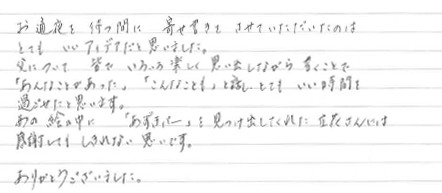 お通夜を待つ間に 寄せ書きを させていただいたのは
とても いいアイデアだと思いました。
父について 皆で いろいろ楽しく 思い出しながら 書くことで
「あんなことがあった」「こんなことも」と話し、とても いい時間を
過ごせたと思います。
あの 絵の中に 「あずきバー」を 見つけ出してくれた 立花さんには
感謝しても しきれない 思いです。
ありがとうございました。